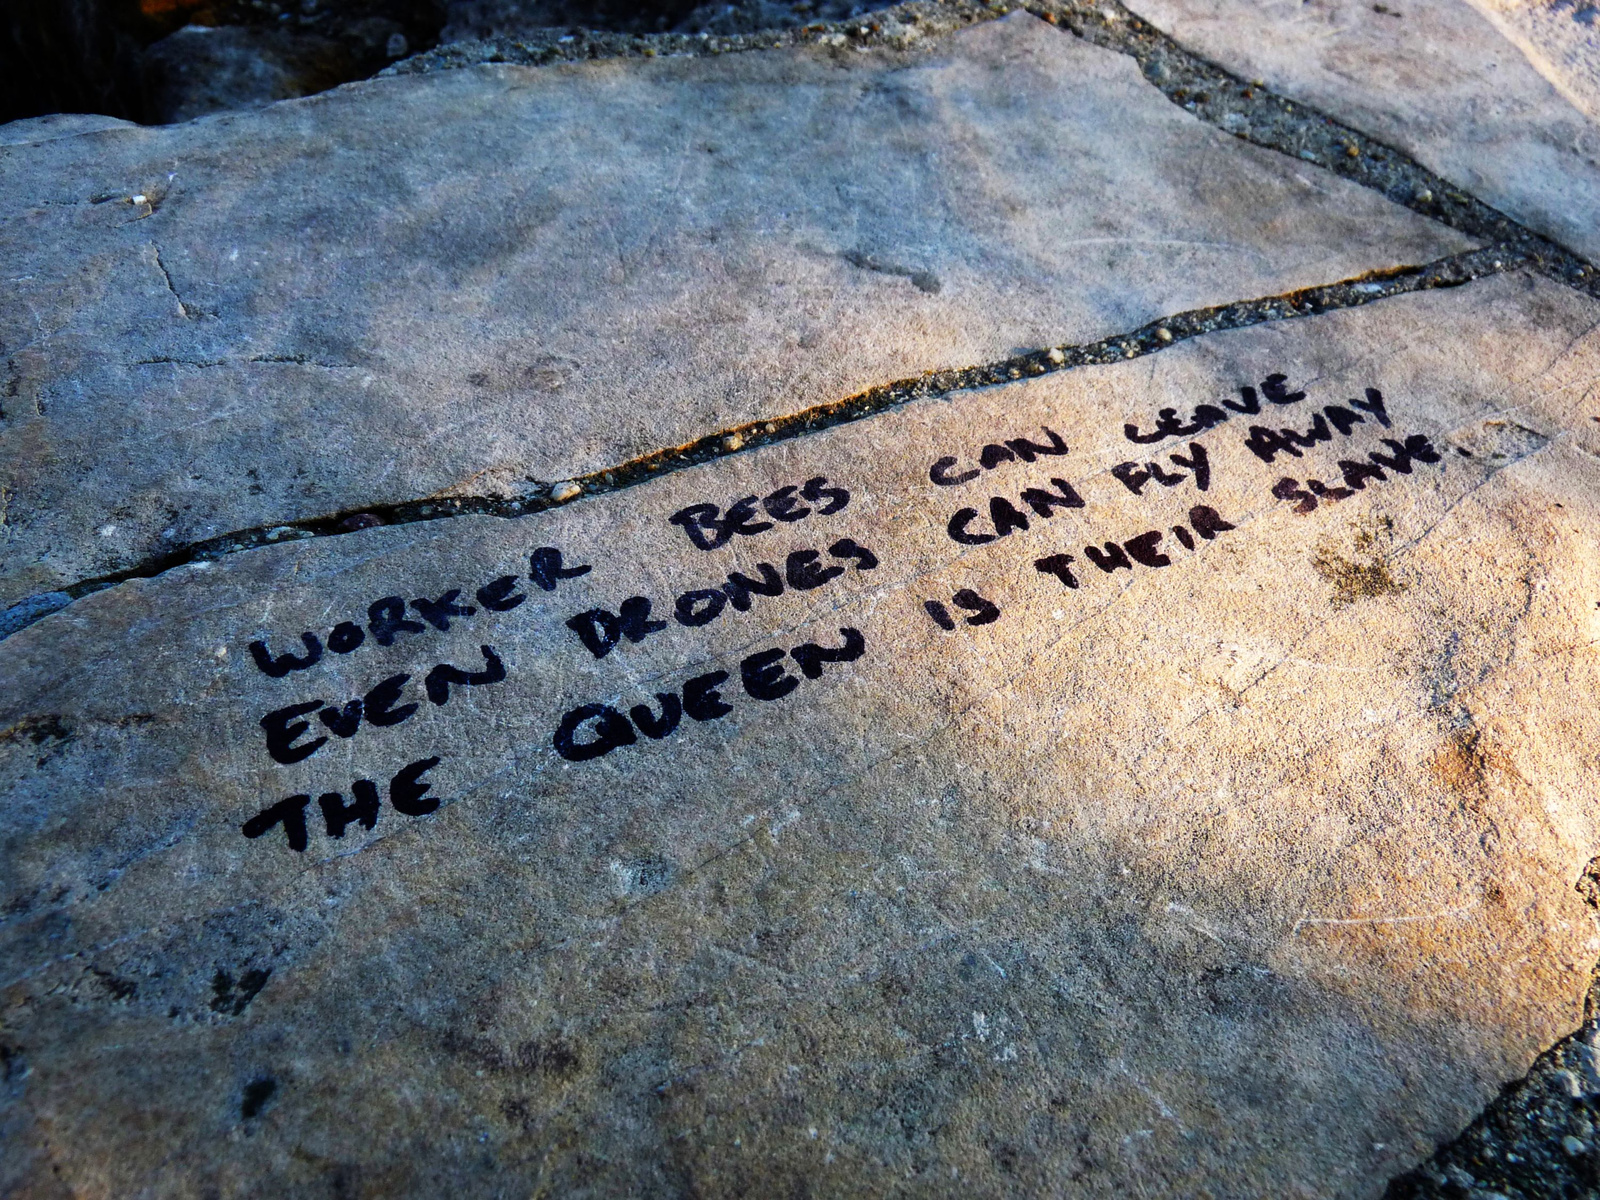 WORKER BEES CAN LEAVE
EVEN DRONES CAN FLY AWAY
THE QUEEN IS THEIR SLAVE.